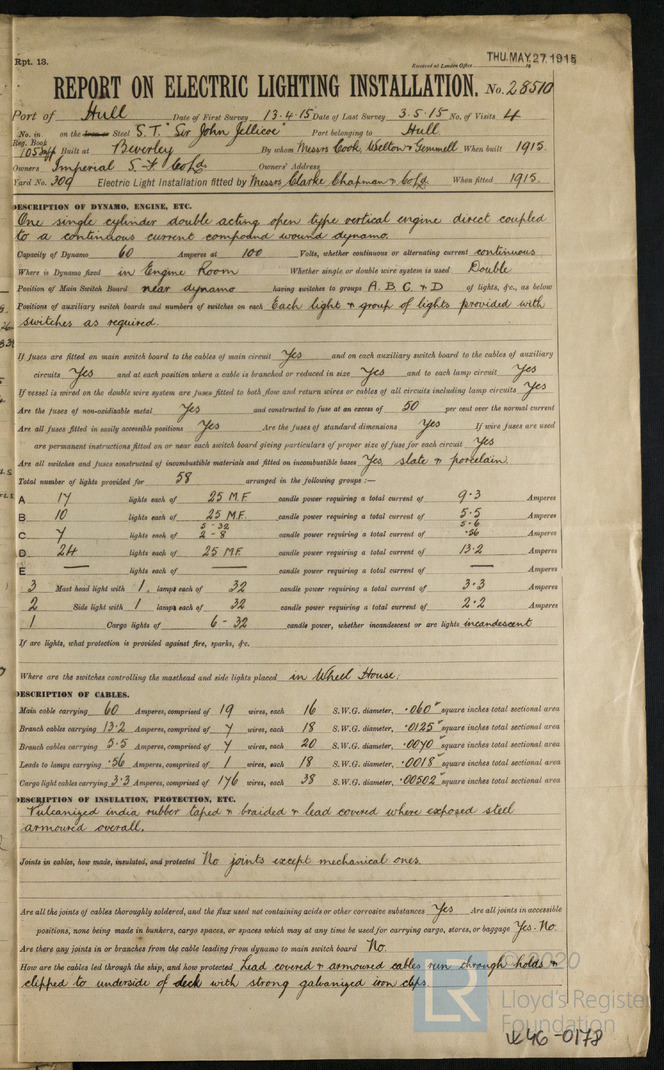 Rpt. 13.
Received at London Office
THU. MAY. 27. 1915
REPORT ON ELECTRIC LIGHTING INSTALLATION. No. 28510
Port of Hull Date of First Survey 13.4.15 Date of Last Survey 3.5.15 No. of Visits 4
No. in Reg. Book on the Iron or Steel S.T. "Sir John Jellicoe" Port belonging to Hull
Built at Beverley By whom Messrs Cook, Welton & Gemmell When built 1915
Owners Imperial S. F. Co Ld. Owners' Address
Yard No. 309 Electric Light Installation fitted by Messrs Clarke Chapman & Co Ld. When fitted 1915.
DESCRIPTION OF DYNAMO, ENGINE, ETC.
One single cylinder double acting open type vertical engine direct coupled
to a continuous current compound wound dynamo.
Capacity of Dynamo 60 Amperes at 100 Volts, whether continuous or alternating current continuous
Where is Dynamo fixed in Engine Room Whether single or double wire system is used Double
Position of Main Switch Board near dynamo having switches to groups A. B. C. & D of lights, &c., as below
Positions of auxiliary switch boards and numbers of switches on each Each light & group of lights provided with
switches as required.
If fuses are fitted on main switch board to the cables of main circuit Yes and on each auxiliary switch board to the cables of auxiliary
circuits Yes and at each position where a cable is branched or reduced in size Yes and to each lamp circuit Yes
If vessel is wired on the double wire system are fuses fitted to both flow and return wires or cables of all circuits including lamp circuits Yes
Are the fuses of non-oxidisable metal Yes and constructed to fuse at an excess of 50 per cent over the normal current
Are all fuses fitted in easily accessible positions Yes Are the fuses of standard dimensions Yes If wire fuses are used
are permanent instructions fitted on or near each switch board giving particulars of proper size of fuse for each circuit Yes
Are all switches and fuses constructed of incombustible materials and fitted on incombustible bases Yes, slate & porcelain.
Total number of lights provided for 58 arranged in the following groups :—
A 17 lights each of 25 M.F. candle power requiring a total current of 9.3 Amperes
B 10 lights each of 25 M.F. candle power requiring a total current of 5.5 Amperes
C 7 lights each of 5 - 32 2 - 8 candle power requiring a total current of 5.6 .56 Amperes
D 24 lights each of 25 M.F. candle power requiring a total current of 13.2 Amperes
E — lights each of — candle power requiring a total current of — Amperes
3 Mast head light with 1 lamps each of 32 candle power requiring a total current of 3.3 Amperes
2 Side light with 1 lamps each of 32 candle power requiring a total current of 2.2 Amperes
1 Cargo lights of 6 - 32 candle power, whether incandescent or arc lights incandescent
If arc lights, what protection is provided against fire, sparks, &c.
Where are the switches controlling the masthead and side lights placed in Wheel House.
DESCRIPTION OF CABLES.
Main cable carrying 60 Amperes, comprised of 19 wires, each 16 S.W.G. diameter, .060 square inches total sectional area
Branch cables carrying 13.2 Amperes, comprised of 7 wires, each 18 S.W.G. diameter, .0125 square inches total sectional area
Branch cables carrying 5.5 Amperes, comprised of 7 wires, each 20 S.W.G. diameter, .0070 square inches total sectional area
Leads to lamps carrying .56 Amperes, comprised of 1 wires, each 18 S.W.G. diameter, .0018 square inches total sectional area
Cargo light cables carrying 3.3 Amperes, comprised of 176 wires, each 38 S.W.G. diameter, .00502 square inches total sectional area
DESCRIPTION OF INSULATION, PROTECTION, ETC.
Vulcanized india rubber taped & braided & lead covered where exposed steel
armoured overall.
Joints in cables, how made, insulated, and protected No joints except mechanical ones.
Are all the joints of cables thoroughly soldered, and the flux used not containing acids or other corrosive substances Yes Are all joints in accessible
positions, none being made in bunkers, cargo spaces, or spaces which may at any time be used for carrying cargo, stores, or baggage Yes. No.
Are there any joints in or branches from the cable leading from dynamo to main switch board No.
How are the cables led through the ship, and how protected Lead covered & armoured cables run through holds &
clipped to underside of deck with strong galvanized iron clips.
© 2020
LR Lloyd's Register
Foundation
W46-0178